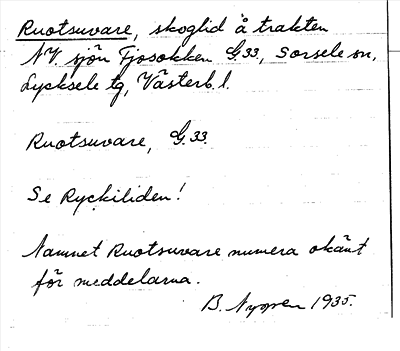 Ruotsuvare, skoglid å trakten
NV. sjön Fjosokken G.33, Sorsele sn,
Lycksele tg, Västerb. l.
Ruotsuvare, G.33.
Se Ryckiliden!
Namnet Ruotsuvare numera okänt
för meddelarna.
B. Nygren 1935.